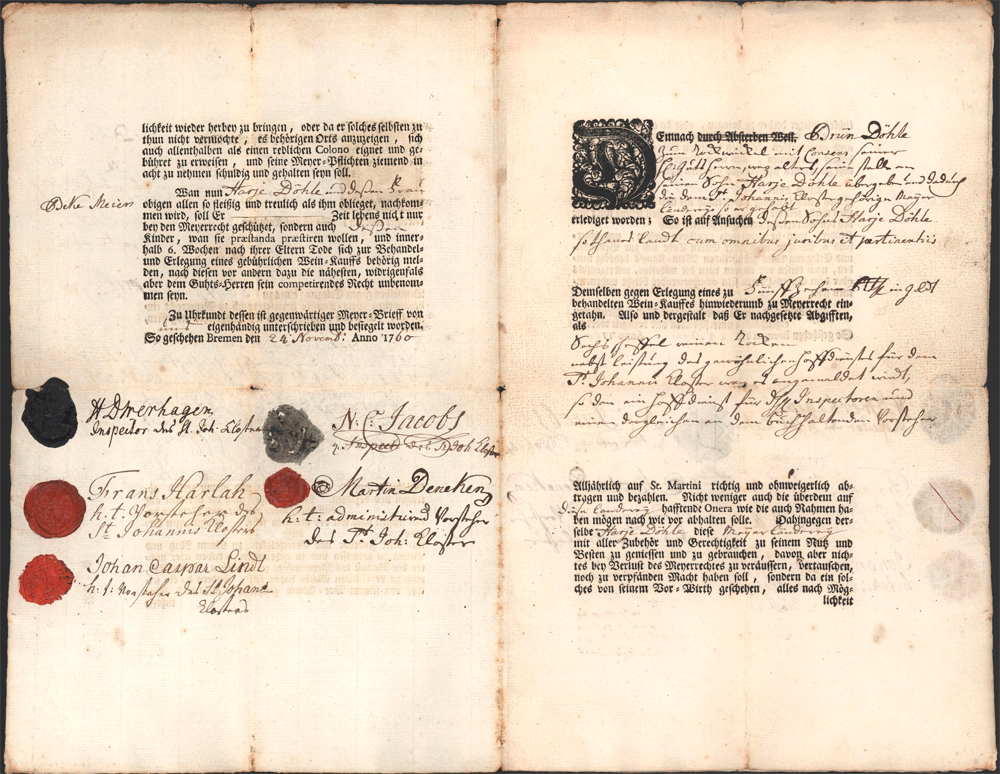 lichkeit wieder herbey zu bringen, oder da er solches selbsten zu
thun nicht vermöchte, es behörigen Orts anzuzeigen, sich
auch allenthalben als einen redlichen Colono eignet und ge-
bühret zu erweisen, und seine Meyer-Pflichten ziemend in
acht zu nehmen schuldig und gehalten seyn soll.
Wan nun Harje Döhle und deßen Frau
Beke Meiers obigen allen so fleißig und treulich als ihm oblieget, nachkom-
men wird, soll Er Zeit lebens nicht nur
bey den Meyerrecht geschützet, sondern auch deßen
Kinder, wan sie præstanda præstiren wollen, und inner-
halb 6. Wochen nach ihrer Eltern Tode sich zur Behandel-
und Erlegung eines gebührlichen Wein-Kauffs behörig mel-
den, nach diesen vor andern dazu die nähesten, widrigenfals
aber dem Guhts-Herren sein competirendes Recht unbenom-
men seyn.
Zu Uhrkundt dessen ist gegenwärtiger Meyer-Brieff von
uns eigenhändig unterschrieben und besiegelt worden.
So geschehen Bremen den 24 Novemb: Anno 1760
HDWerhagen
Inspector des St. Joh: Closters
N. C. Jacobs
Inspect: des St Joh Closter
Frans Harlah
h. t. Vorsteher des
St Johannis Closters
Martin Deneken
h: t: administrirend Vorsteher
des St. Joh: Closter
Johan Caspar Lindt
h: t: Vorsteher des St Johans
Closters
Demnach durch Absterben Weil. Brün Döhle
zum Rockwinkel mit Consens seiner
Guthsherren, wegen alters seine stelle an
seinen Sohn Harje Döhle übergeben und dadurch
die dem St. Johannis Closter gehörige Meyer
Länderey so er gehabt
erlediget worden; So ist auf Ansuchen deßen Sohns Harje Döhle
sothanes landt cum omnibus juribus et pertinentiis
Demselben gegen Erlegung eines zu
behandelten Wein-Kauffes hinwiederumb zu Meyerrecht ein-
getahn. Also und dergestalt daß Er nachgesetzte Abgifften,
als
Sechs scheffel reinen Rocken
nebst leistung des gewöhnlichen hoffdienstes für dem
St. Johannis Closter wan es angemeldet wirdt,
so den ein hoffdienst für Inspectoren und
einen dergleichen an dem buchhaltenden Vorsteher
Alljährlich auf St. Martini richtig und ohnweigerlich ab-
tragen und bezahlen. Nicht weniger auch die überdem auf
diese länderey hafftende Onera wie die auch Nahmen ha-
ben mögen nach wie vor abhalten solle. Dahingegen der-
selbe Harje Döhle diese Meyerländerey
mit aller Zubehör und Gerechtigkeit zu seinem Nutz und
Besten zu geniessen und zu gebrauchen, davon aber nich-
tes bey Verlust des Meyerrechtes zu veräussern, vertauschen,
noch zu verpfänden Macht haben soll, sondern da ein sol-
ches von seinem Vor-Wirth geschehen, alles nach Mög-
lichkeit